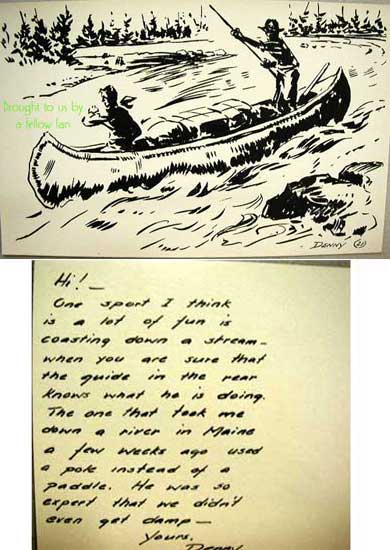 Brought to us by
a fellow fan
DENNY
Hi! —
One sport I think
is a lot of fun is
coasting down a stream —
when you are sure that
the guide in the rear
knows what he is doing.
The one that took me
down a river in Maine
a few weeks ago used
a pole instead of a
paddle. He was so
expert that we didn't
even get damp —
Yours,
Denny